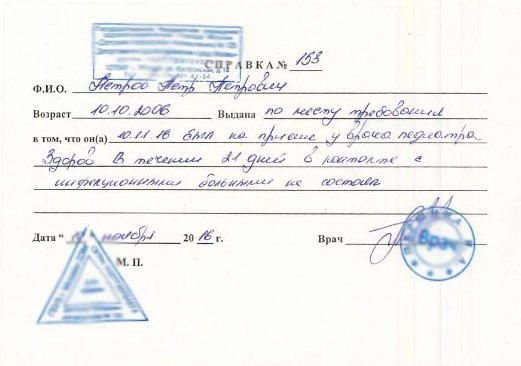 СПРАВКА № 153
Ф.И.О. Петров Петр Петрович
Возраст 10.10.2006 Выдана по месту требования
в том, что он(а) 10.11.16 был на приеме у врача педиатра
Здоров В течении 21 дней в контакте с
инфекционными больными не состоял
Дата " ноября 2016 г. Врач
М. П.
Врач